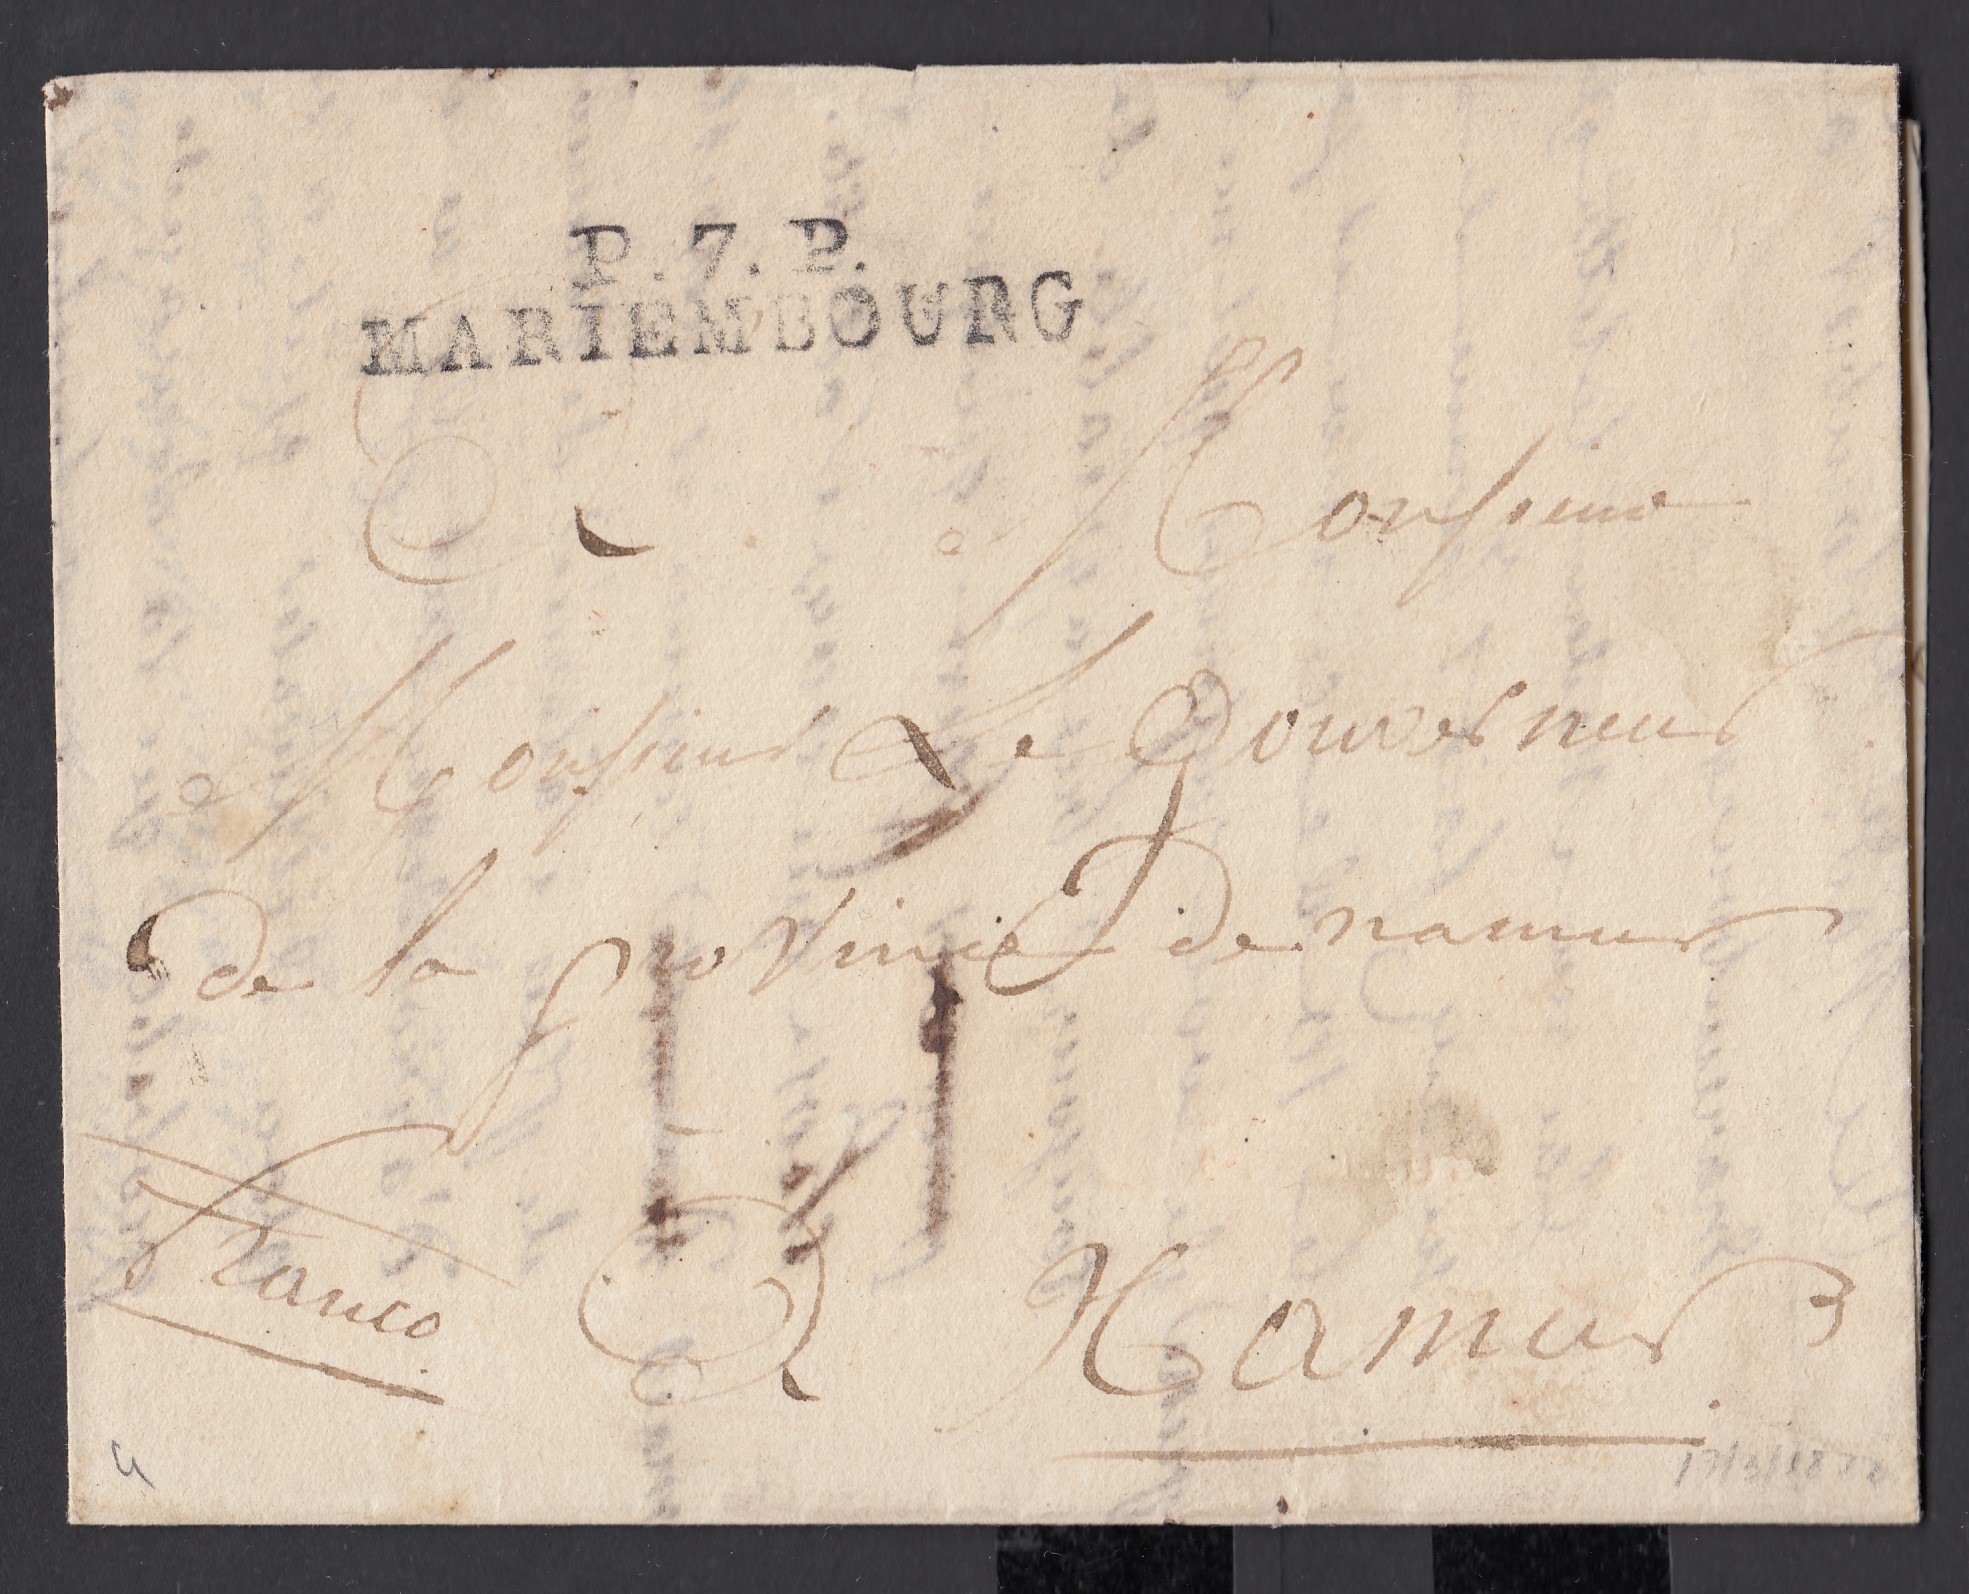 P.7.P.
MARIEMBOURG
A Monsieur
Monsieur Le Gouverneur
de la province de namur
Franco
A Namur
4